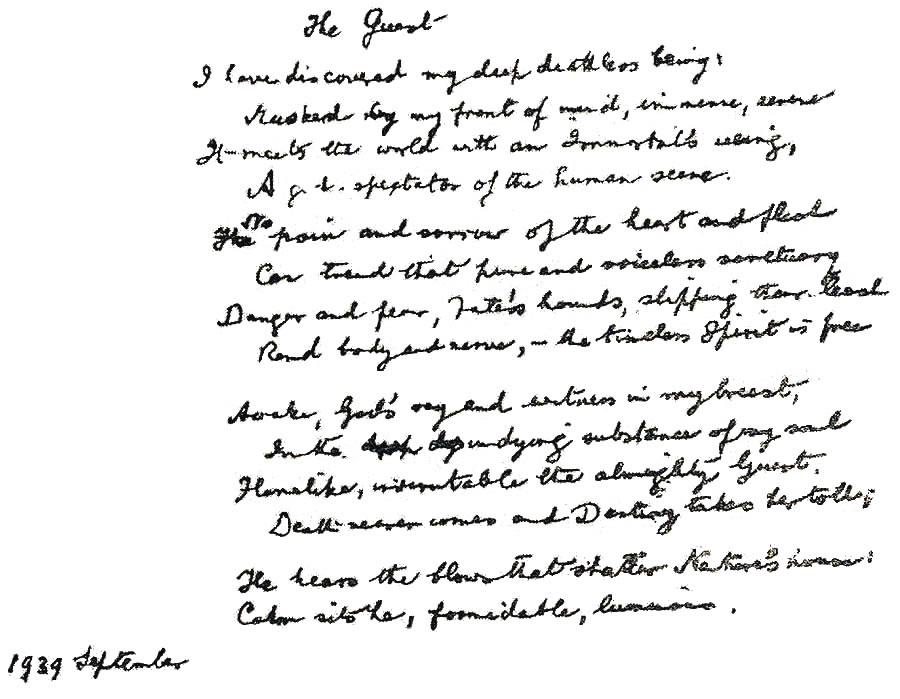 The Guest
I have discovered my deep deathless being:
Masked by my front of mind, immense, serene
It meets the world with an Immortal's seeing,
A god-spectator of the human scene.
No pain and sorrow of the heart and flesh
Can tread that pure and voiceless sanctuary
Danger and fear, Fate's hounds, slipping their leash
Rend body and nerve, – the timeless Spirit is free
Awake, God's ray and witness in my breast,
In the undying substance of my soul
Flamelike, inscrutable the almighty Guest.
Death nearer comes and Destiny takes her toll;
He hears the blows that shatter Nature's house:
Calm sits he, formidable, luminous.
1939 September